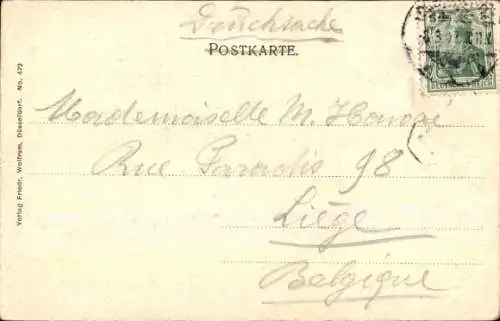 Drucksache
POSTKARTE.
DEUTSCHES REICH
Mademoiselle M.
Rue Paradis 98
Liège
Belgique
Verlag Friedr. Wolfrum, Düsseldorf. No. 472